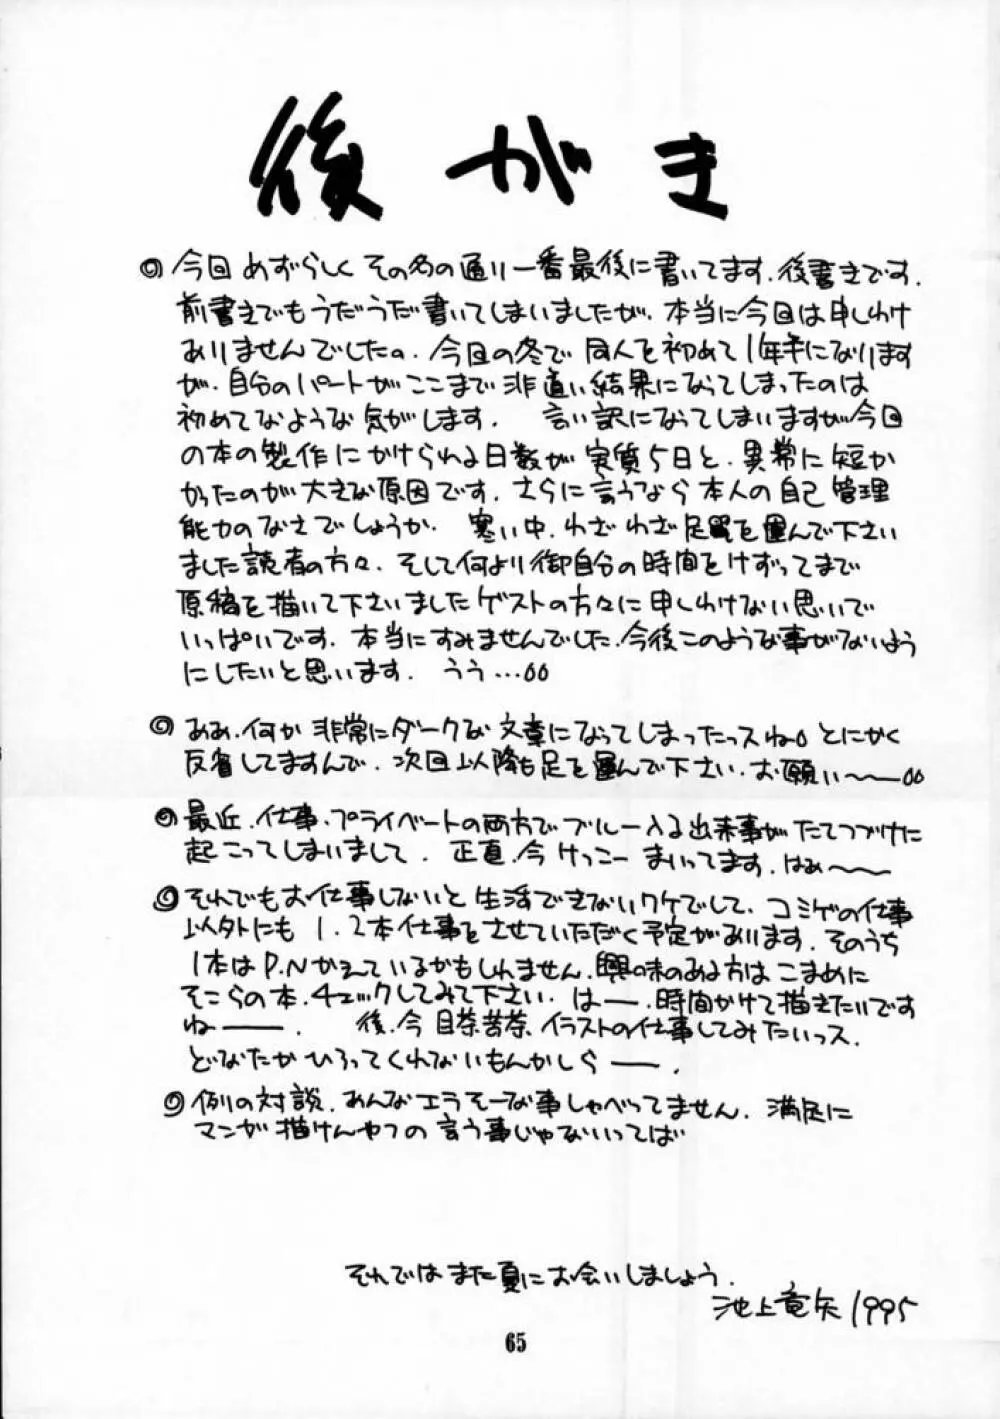 後がき
◎今回めずらしくその名の通り一番最後に書いてます.後書きです.
前書きでもうだうだ書いてしまいましたが、本当に今回は申しわけ
ありませんでした。今回の冬で同人を初めて1年半になります
が、自分のパートがここまで非道い結果になってしまったのは
初めてなような気がします. 言い訳になってしまいますが今回
の本の製作にかけられる日数が実質5日と、異常に短か
かったのが大きな原因です.さらに言うなら本人の自己管理
能力のなさでしょうか. 寒い中、わざわざ足を運んで下さい
ました読者の方々、そして何より御自分の時間をけずってまで
原稿を描いて下さいましたゲストの方々に申しわけない思いで
いっぱいです.本当にすみませんでした.今後このような事がないよう
にしたいと思います. うう…。。
◎ああ、何か非常にダークな文章になってしまったっスね。とにかく
反省してますんで、次回以降も足を運んで下さい.お願い〜〜。。
◎最近、仕事・プライベートの両方でブルー入る出来事がたてつづけに
起こってしまいまして、正直、今けっこーまいってます.はぁ〜〜
◎それでもお仕事しないと生活できないワケでして、コミケの仕事
以外にも1、2本仕事をさせていただく予定があります.そのうち
1本はP.Nかえているかもしれません.興味のある方はこまめに
そこらの本、チェックしてみて下さい. はー、時間かけて描きたいです
ね――. 後、今目茶苦茶、イラストの仕事してみたいっス.
どなたかひろってくれないもんかしら――.
◎例の対談、あんなエラそーな事しゃべってません.満足に
マンガ描けんやつの言う事じゃないいってば
それではまた夏にお会いしましょう.
池上竜矢1995
65